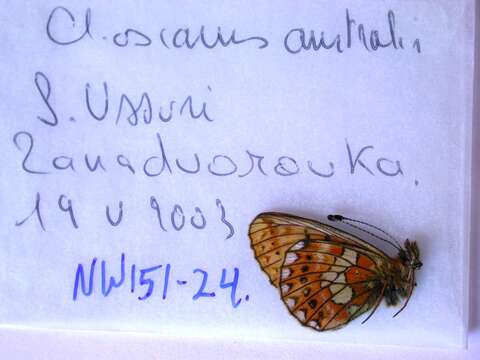 Cl. oscarus australis
S. Ussuri
Zanadvorovka.
19 V 2003
NW151-24.